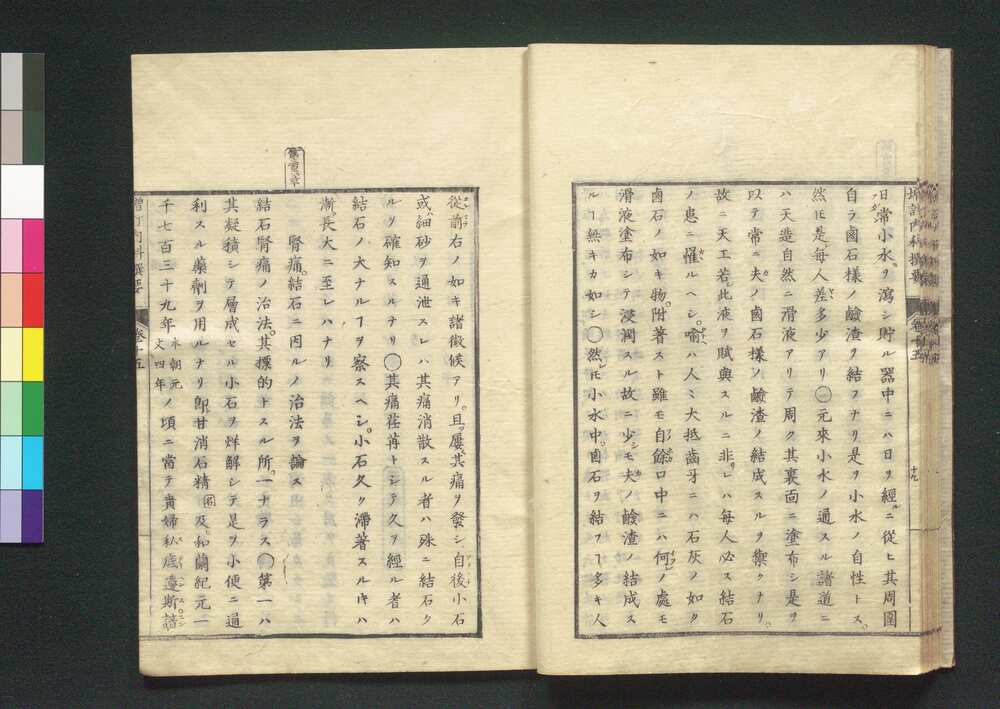 日常小水ヲ瀉シ貯ル器中ニハ日ヲ經ルニ從ヒ其周圍
自ラ鹵石樣ノ鹸渣ヲ結フナリ是ヲ小水ノ自性トス
然𪜈是每人差多少アリ㊀元來小水ノ通スル諸道ニ
ハ天造自然ニ滑液アリテ周ク其裏面ニ塗布シ是ヲ
以テ常ニ夫ノ鹵石樣ノ鹸渣ノ結成スルヲ禦クナリ
故ニ天工若シ此液ヲ賦與スルニ非レハ每人必ス結石
ノ患ニ罹ルヘシ喻ハ人々大抵齒牙ニハ石灰ノ如ク
鹵石ノ如キ物附著スト雖モ自餘口中ニハ何ノ處モ
滑液塗布シテ浸潤スル故ニ少シモ夫ノ鹸渣ノ結成ス
ルヿ無キカ如シ〇然𪜈小水中鹵石ヲ結フヿ多キ人
十九
從前右ノ如キ諸徵候アリ且屢其痛ヲ發シ自後小石
或ハ細砂ヲ通泄スレハ其痛消散スル者ハ殊ニ結石タ
ルヿ確知スルナリ〇其痛荏苒トシテ久ヲ經ル者ハ
結石ノ大ナルヿヲ察スヘシ小石久ク滯著スル𪜈ハ
漸ク長大ニ至レハナリ
腎痛結石ニ因ルノ治法ヲ論ス
結石腎痛ノ治法其標的トスル所一ナラス〇第一ハ
其凝積シテ層成セル小石ヲ烊解シテ是ヲ小便ニ通
利スル藥劑ヲ用ルナリ卽甘消石精及和蘭紀元一
千七百三十九年元文四年ノ頃ニ當テ貴婦私
增訂內科撰要 卷十五